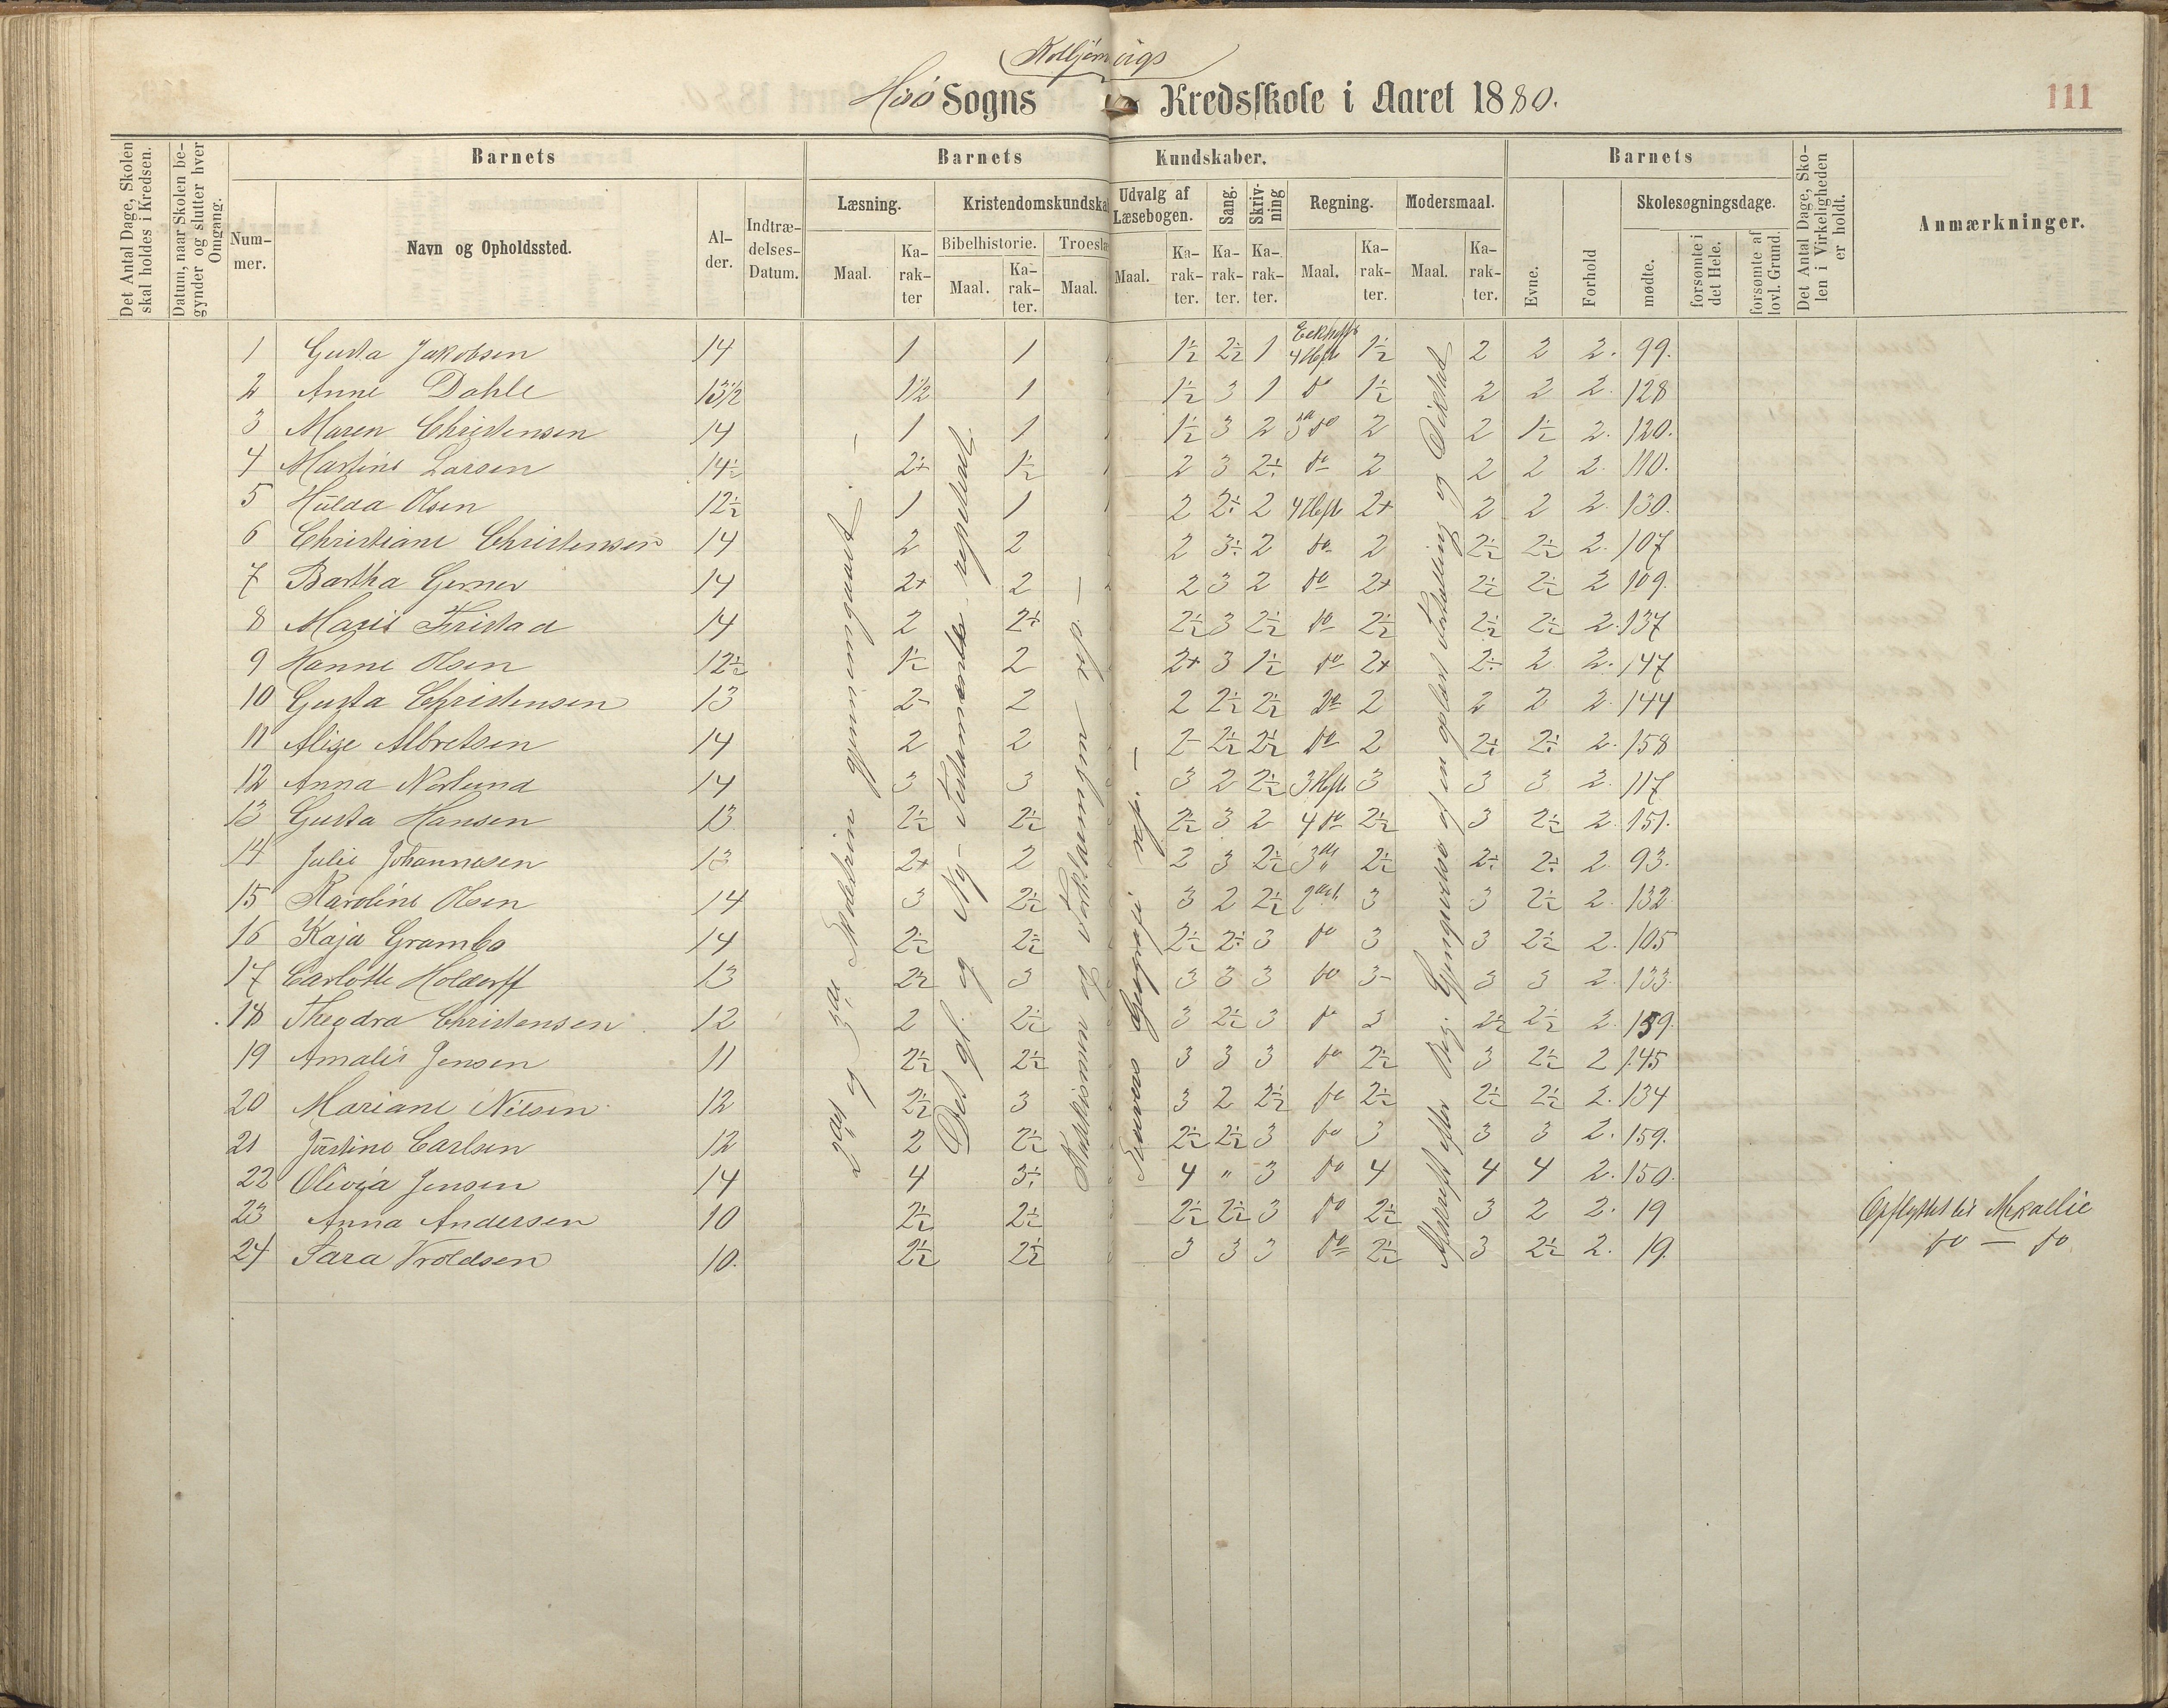 Kolbjørnvigs
Hisø Sogns Kredsskole i Aaret 1880.
111
Det Antal Dage, Skolen skal holdes i Kredsen.
Datum, naar Skolen begynder og slutter hver Omgang.
Barnets
Nummer.
Navn og Opholdssted.
Alder.
Indtrædelses-Datum.
Barnets Kundskaber.
Læsning.
Maal.
Karakter
Kristendomskundska
Bibelhistorie.
Maal.
Karakter.
Troeslæ
Maal.
Udvalg af Læsebogen.
Maal.
Karakter.
Sang.
Karakter.
Skrivning
Karakter.
Regning.
Maal.
Karakter.
Modersmaal.
Maal.
Karakter.
Barnets
Evne.
Forhold
Skolesøgningsdage.
mødte.
forsømte i det Hele.
forsømte af lovl. Grund.
Det Antal Dage, Skolen i Virkeligheden er holdt.
Anmærkninger.
1 Gusta Jakobsen 14 1 1 1½ 2½ 1 4 Hefte 1½ 2 2 2. 99.
2 Anne Dahle 13½ 1½ 1 1½ 3 1 do 1½ 2 2 2. 128
3 Maren Christensen 14 1 1 1½ 3 2 3 do 2 2 1½ 2. 120.
4 Martine Larsen 14½ 2+ 1½ 2 3 2÷ do 2 2 2 2. 110.
5 Hulda Olsen 12½ 1 1 2 2÷ 2 4 Hefte 2+ 2 2 2. 130.
6 Christiane Christensen 14 2 2 2 3÷ 2 do 2 2½ 2½ 2. 107
7 Bertha Gerner 14 2+ 2 2 3 2 do 2+ 2½ 2½ 2 109.
8 Marie Fristad 14 2 2+ 2½ 3 2½ do 2½ 2½ 2½ 2. 137
9 Hanne Olsen 12½ 1½ 2 2+ 3 1½ do 2+ 2÷ 2 2. 147
10 Gusta Christensen 13 2- 2 2 2½ 2½ do 2 2 2 2. 144
11 Alise Albretsen 14 2 2 2- 2½ 2½ do 2 2÷ 2÷ 2. 158
12 Anna Norlund 14 3 3 3 2 2½ 3 Hefte 3 3 3 2. 117
13 Gusta Hansen 13 2½ 2½ 2½ 3 2 4 do 2½ 3 2½ 2. 151.
14 Julie Johannesen 13 2+ 2 2 3 2½ 3de 2½ 2÷ 2÷ 2. 93.
15 Karoline Olsen 14 3 2½ 3 2 2½ 3 3 2½ 2. 132
16 Kaja Grambo 14 2½ 2½ 2½ 2÷ 3 do 3 3 2½ 2. 105
17 Carlotte Holdorff 13 2½ 3 3 3 3 do 3- 3 3 2. 133.
18 Theodra Christensen 12 2 2½ 3 2½ 3 do 3 2½ 2½ 2. 159.
19 Amalie Jensen 11 2½ 2½ 3 3 3 do 2½ 3 2½ 2 145
20 Mariane Nilsen 12 2½ 3 3 2 2½ do 2½ 2½ 2½ 2. 134
21 Jöstine Carlsen 12 2 2½ 2½ 2½ 3 do 3 3 3 2. 159.
22 Olivia Jensen 14 4 3÷ 4 " 3 do 4 4 4 2. 150.
23 Anna Andersen 10 2½ 2½ 2½ 2½ 3 do 2½ 3 2 2. 19 Opflyttet til
24 Sara Troldsen 10. 2½ 2½ 3 3 3 do 2½ 3 2½ 2. 19. do — do
2den og 3die Skoletrin gjennemgaaet. —
Det gl. og Ny-Testamente repeteret.
Katekismen og Forklaringen rep. —
Geografi rep. —
Afskrift efter Bog. Gjengivelse af en oplæst Fortælling og Diktat